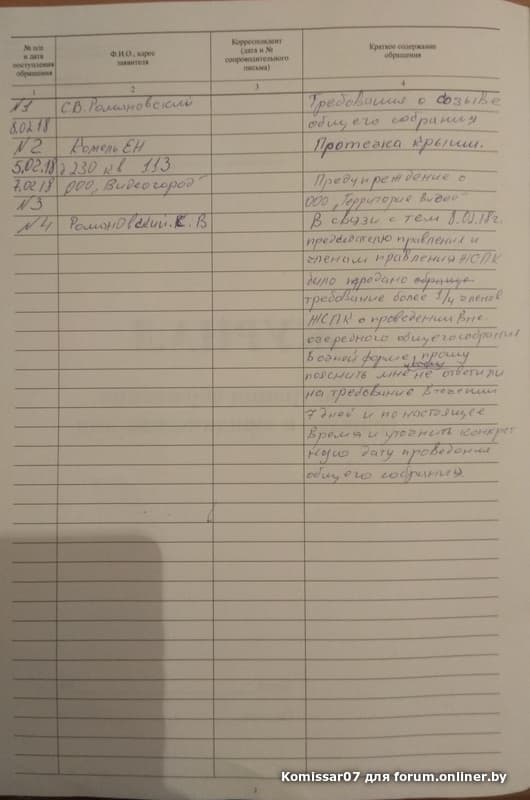 № п/п и дата поступления обращения
Ф.И.О., адрес заявителя
Корреспондент (дата и № сопроводительного письма)
Краткое содержание обращения
1 2 3 4
№1 С.В. Романовский Требования о созыве
8.02.18 общего собрания
№2 Комель ЕН Протечка крыши.
5.02.18 230 кв 113
7.02.18 ООО "Видеогород" Предупреждение о
№3 ООО "Территория
№4 Романовский К. В В связи с тем 8.02.18г.
председателю правления и
членам правления ЖСПК
было передано
требование более 1/4 членов
ЖСПК о проведении вне
очередного общего собрания
В очной форме, прошу
пояснить мне не ответили
на требование в течении
7 дней и по настоящее
время и уточнить конкрет
ную дату проведения
общего собрания.
Komissar07 для forum.onliner.by